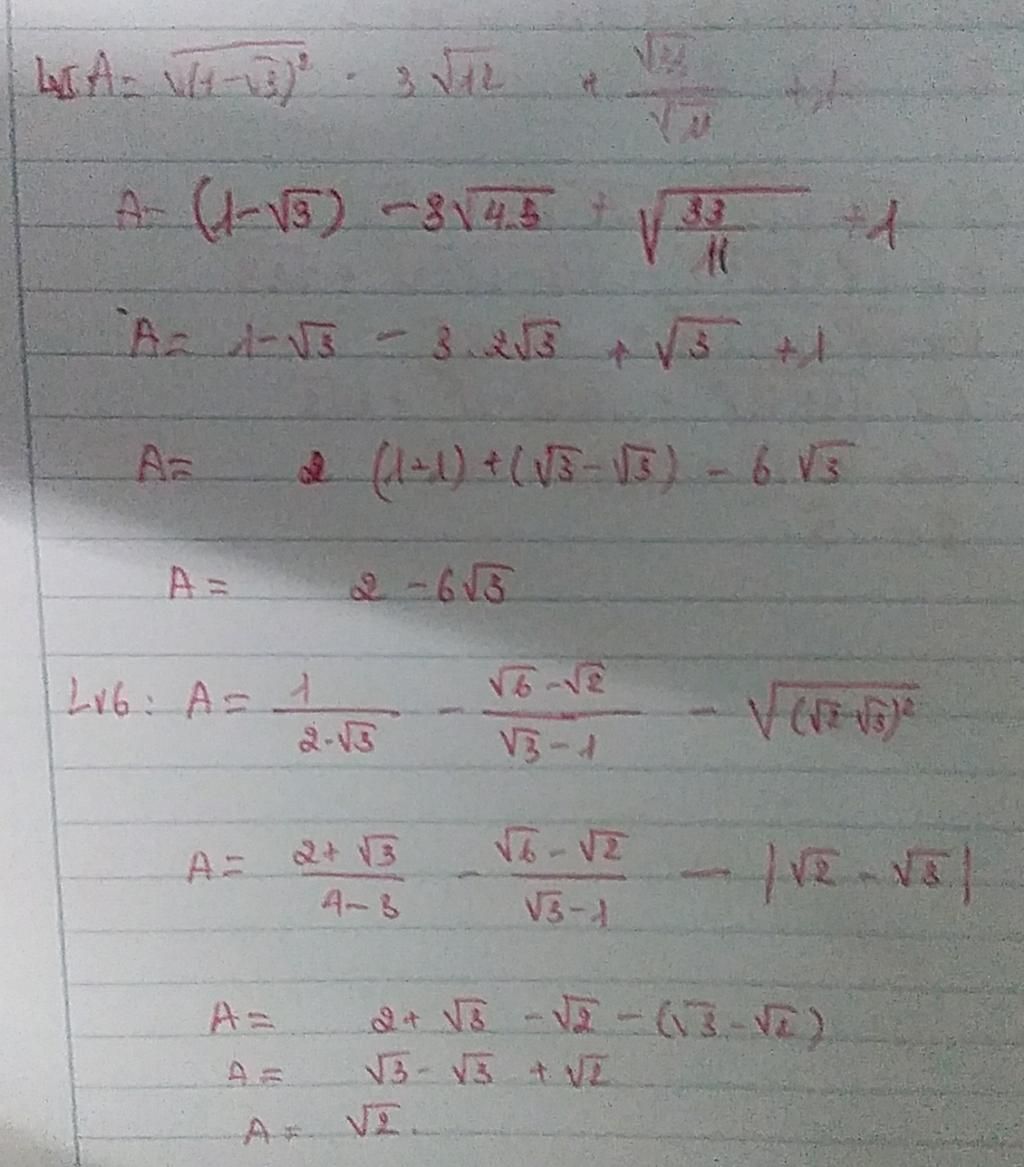 A = √(1-√3)² - 3√12 + √33/√11 + 1
A = (1-√3) - 3√4.3 + √33/11 + 1
A = 1-√3 - 3.2√3 + √3 + 1
A = 2 (1+1) + (√3-√3) - 6√3
A = 2 - 6√3
Lv6: A = 1/2-√3 - √6-√2/√3-1 - √(√2-√3)²
A = 2+√3/4-3 - √6-√2/√3-1 - |√2-√3|
A = 2+√3 - √2 - (√3-√2)
A = √3-√3 + √2
A = √2.